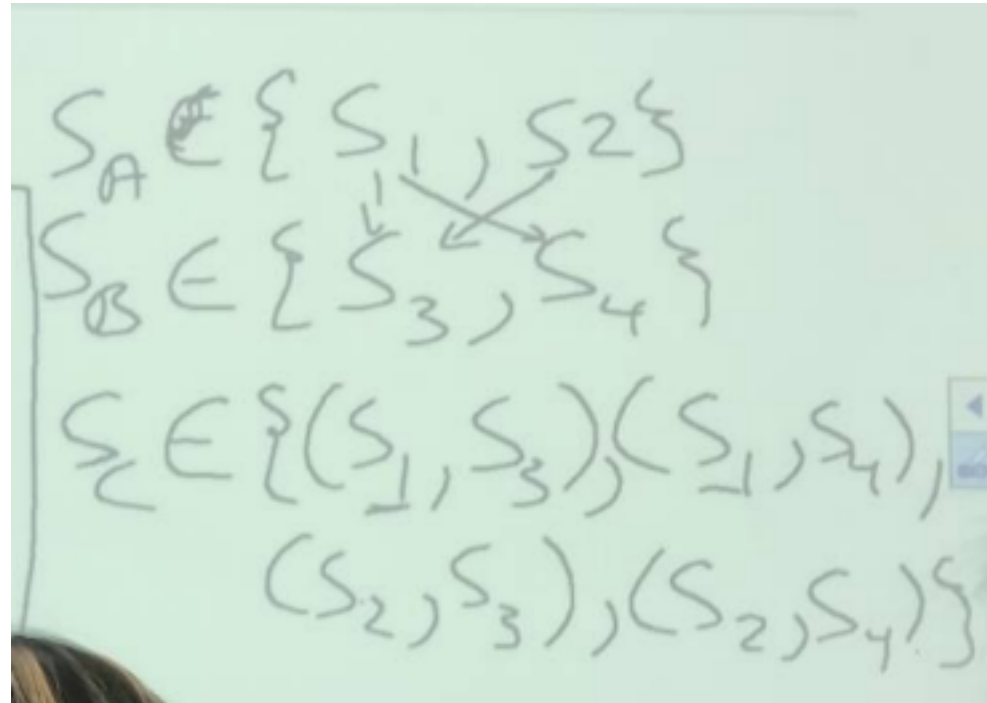 S_A ∈ {S_1, S2}
S_B ∈ {S_3, S_4}
S_C ∈ {(S_1, S_3), (S_1, S_4),
(S_2, S_3), (S_2, S_4)}